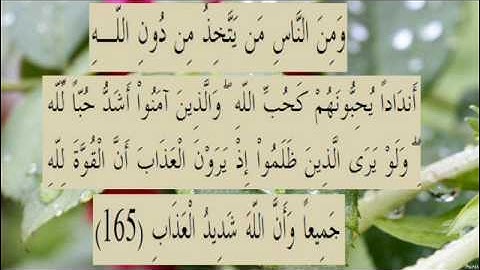 وَمِنَ النَّاسِ مَن يَتَّخِذُ مِن دُونِ اللّـــهِ
أَندَاداً يُحِبُّونَهُمْ كَحُبِّ اللّهِ ۖ وَالَّذِينَ آمَنُواْ أَشَدُّ حُبّاً لِّلّهِ
ۗ وَلَوْ يَرَى الَّذِينَ ظَلَمُواْ إِذْ يَرَوْنَ الْعَذَابَ أَنَّ الْقُوَّةَ لِلّهِ
جَمِيعاً وَأَنَّ اللّهَ شَدِيدُ الْعَذَابِ (165)